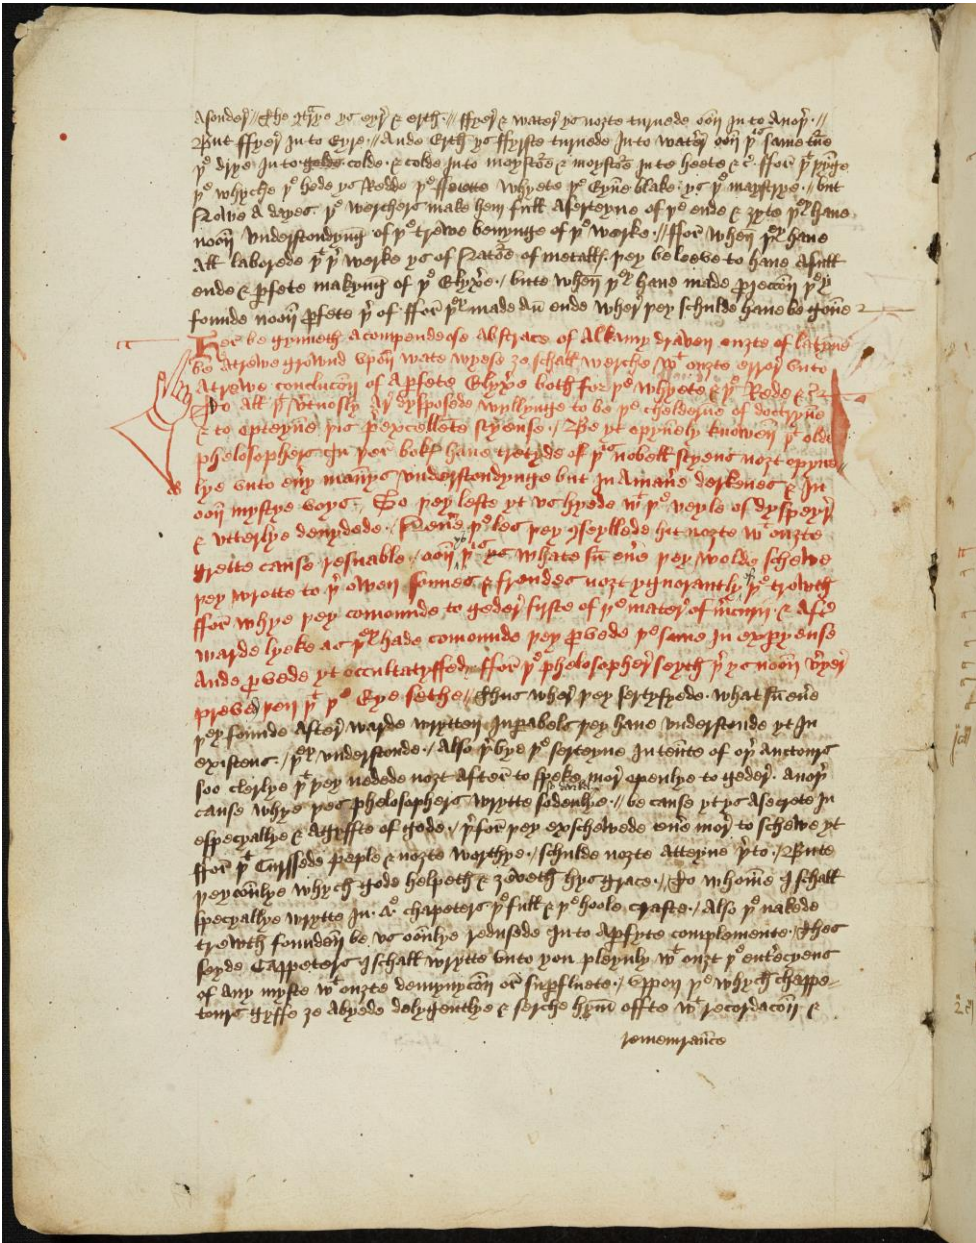 Asonder // The iiije ys eyr & erth // ffyer & water ys nozte turnede oon in to Anoþer //
But ffyer in to Eyre // Ande Erth ys ffyrste turnede into water oon þe same
þe drye into colde & colde into moystore & moystore into heete & c ffor þt þynge
þe whyche þe hede ys Redde þe ffeette whyete þe Eyne blake ys þe maystrye // but
Nowe A dayes þe werchers make hem full Aserteyne of þe ende & zyte þey have
noon understondyng of þe trewe benynge of þe werke // ffor when þey have
All laborede þt þe werke ys of Nature of metalls þey be leeve to have A full
ende & perfete makyng of þe Elyxer // bute when þey have made proiecion þey
founde noon perfete þer of ffor þey made An ende wher þey schulde have be gonne
Her be gynneth A compendeose Abstrace of Alkamy drawen onzte of latyne
be A trewe grownd vpon wate wyese ze schall werche wt onzte error vnto
A trewe conclucion of A perfete Elyxer both for þe whyete & þe Rede & c
To All þt vertuosly Ar dysposede wyllynge to be þe chelderne of doctryne
& to opteyne þis þexcellente scyense // Be yt opynely knowen þt olde
phelosophers In þer bokes have tretyde of þis nobell scyens nozt opyne
lye vnto every mannys understondynge but in A maner derkenes & In
oon mystye voys // So þey lefte yt vs hyede wt þe veyle of dyspeyer
& vtterlye denydede // Nevere þe les þey conseyllede hit nozte wt onzte
grette cause resnable // oon þis ys whate sum ever þey wolde schewe
þey wrotte to þer owen sonnes & frendes nozt ygnorantly of þe trowth
ffor whye þey comounde to geder firste of þe mater of mercuri & After
warde lyeke as þey hade comounde þey prevede þe same in expyense
Ande prevede yt occultatyffed ffor þe phelosopher seyth þer ys noon veryer
preved þen þt þe Eye sethe // Thus wher þey sertyfyede what sum ever
þey founde After warde wrytten In parabols þey have understonde yt In
existens // þey understonde // Also þer bye þe serteyne in tente of oþer Auctours
soo clerlye þt þey nedede nozt After to speke mor openlye to geder Anoþer
cause whye þes phelosophers wrytte sodenlye // be cause yt ys A secrete in
especyallye & A gyffte of gode // þerfor þey exschewede ever mor to schewe yt
ffor þt Curssede peple & nozte worthye // schulde nozte Atteyne þerto // Bute
þey oonlye whych gode helpeth & zeveth hys grace // To whome I schall
specyallye wrytte In chapeters þe full & þe hoole crafte // Also þe nakede
trewth founden be vs oonlye redusede in to A perfyte complemente // Thes
seyde Cappeters I schall wrytte vnto you pleynly wt onzt þe entrecyens
of any myste wt onzte demynycion or superfluete // vppon þe whych chappe=
tours gyffe ze Abyede delygentlye & serche hym offte wt recordacion &
rememrance